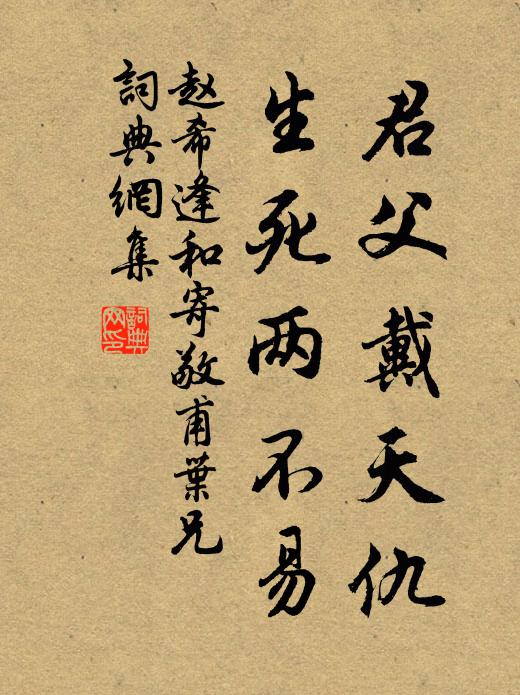 君父戴天仇
生死两不易
赵希逢和寄敬甫葉兄
詞典網集
詞典
网印